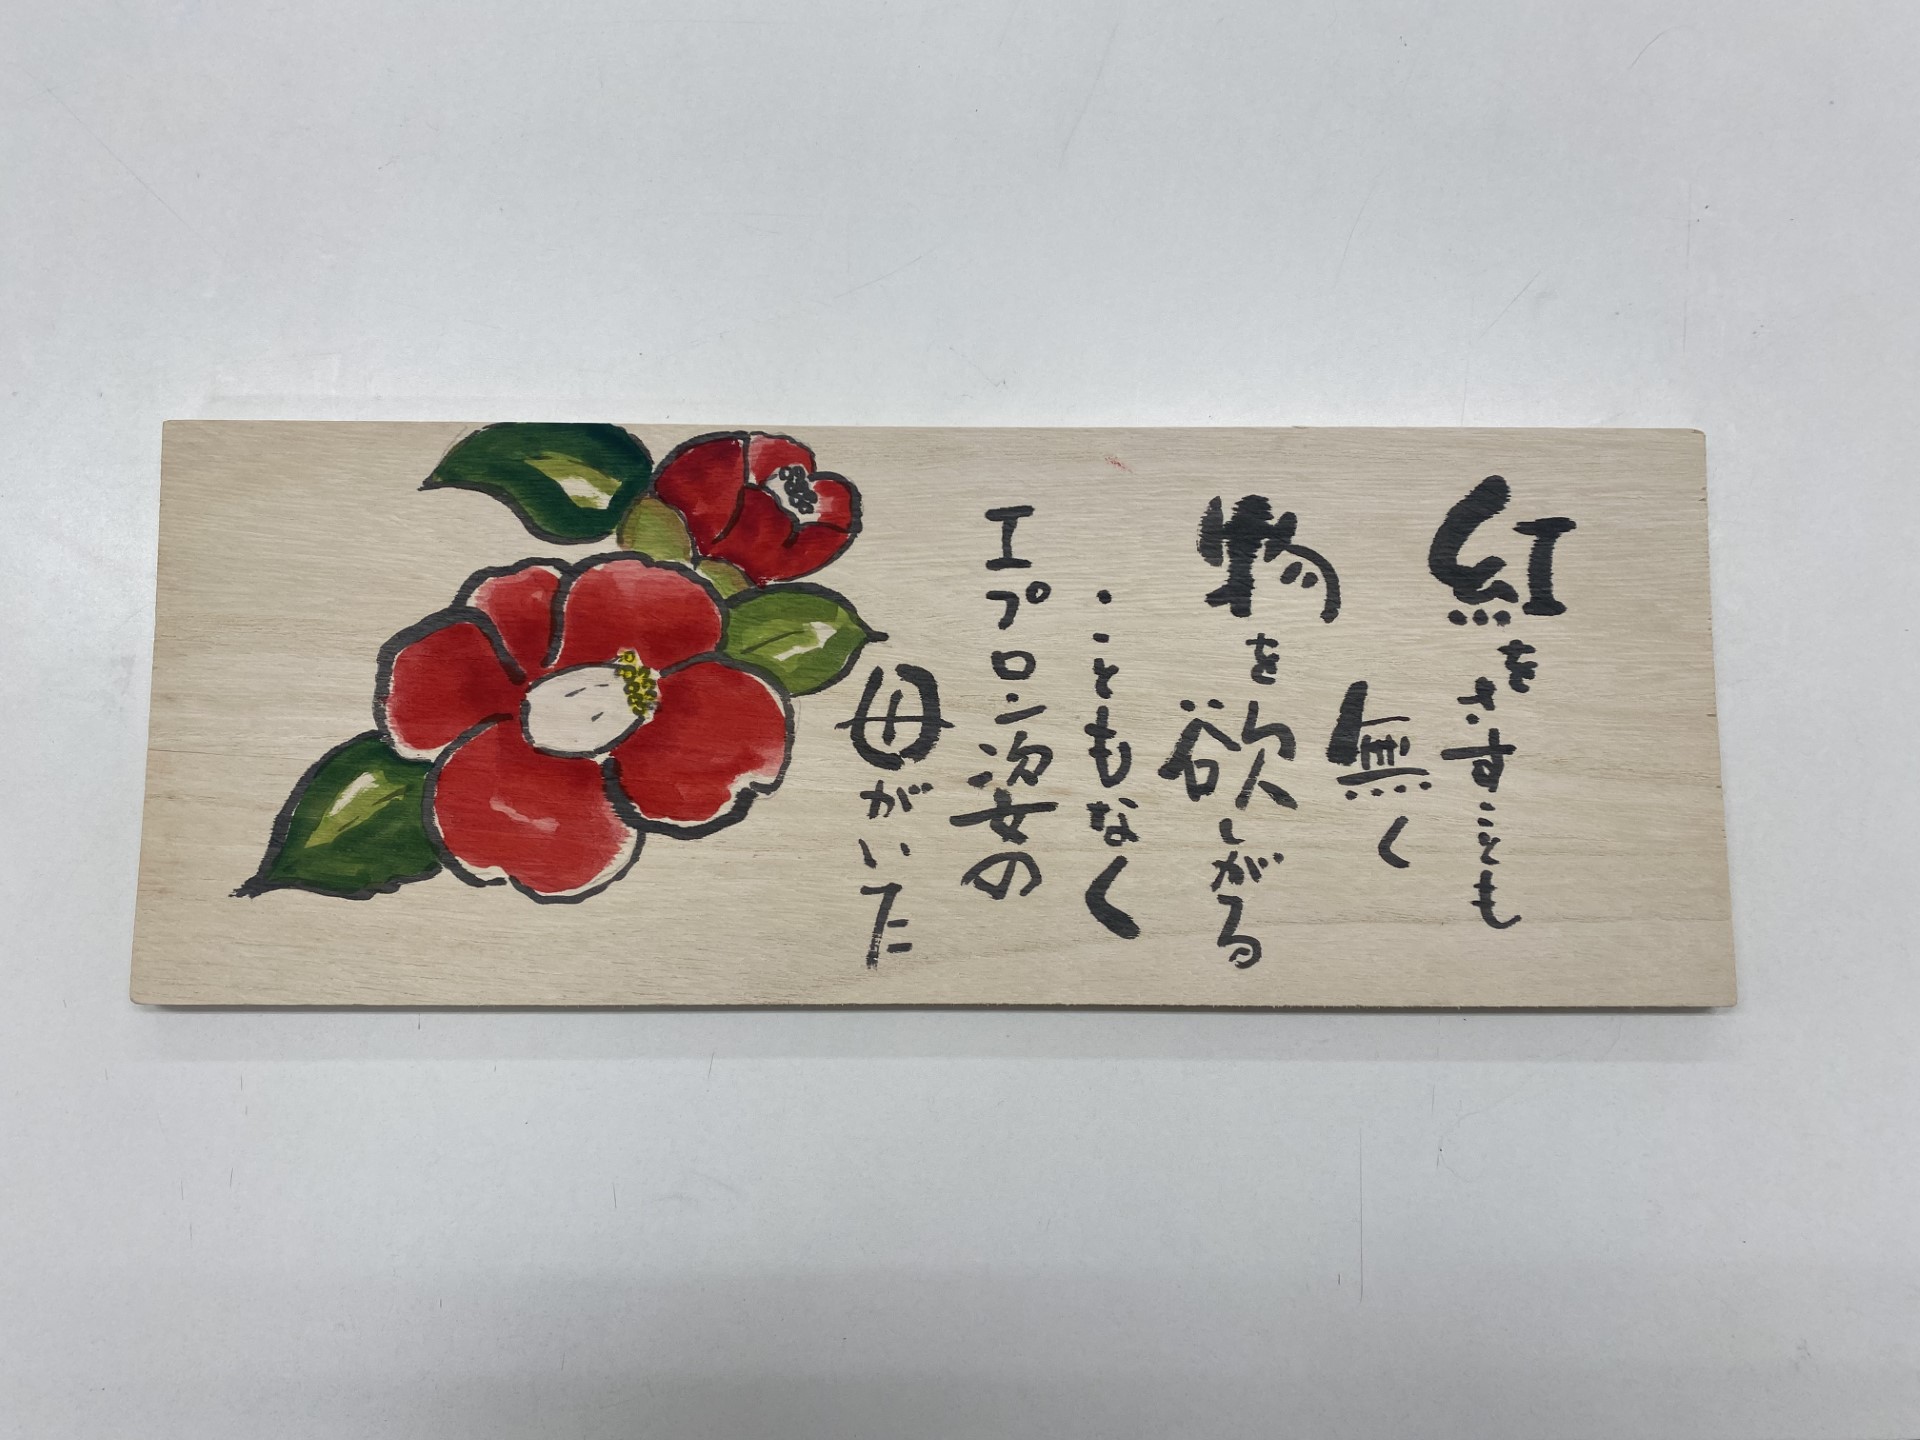 紅をさすことも
無く
物を欲しがる
こともなく
エプロン姿の
母がいた